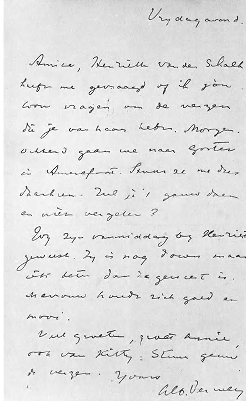 Vrydagavond.
Amice, Henriette van der Schalk
heeft me gevraagd of ik jou
wou vragen om de verzen
die je van haar hebt. Morgen-
ochtend gaan we naar Gorter
in Amersfoort. Stuur ze me dus
Zul je 't gauw doen
en niet vergeten?
Wy zyn vanmiddag by Henriëtte
geweest. Zy is nog zwak maar
beter dan ze geweest is.
Mevrouw houdt zich goed en
mooi.
Veel groeten,
ook van Kitty. Stuur gauw
de verzen. Yours
Alb. Verwey